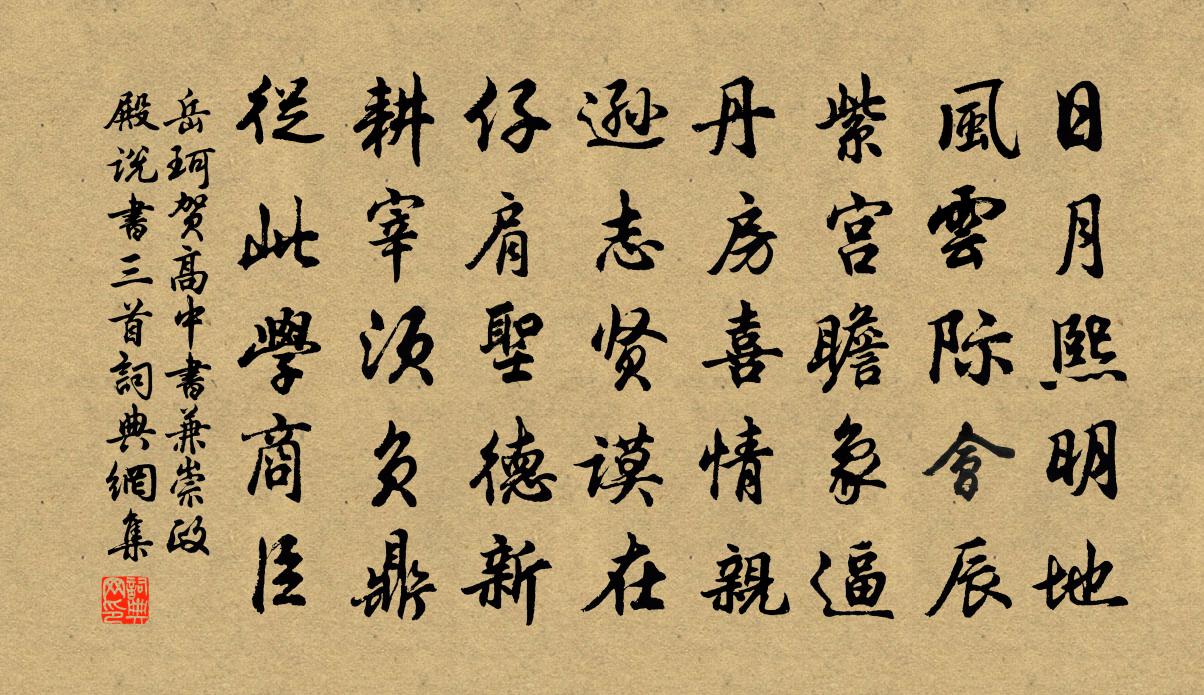 日月熙明地
風雲际會辰
紫宫瞻象逼
丹房喜情親
遜志贤谟在
仔肩聖德新
耕宰須負鼎
從此學商臣
岳珂贺高中書兼崇政
殿説書三首詞典網集
詞典网印